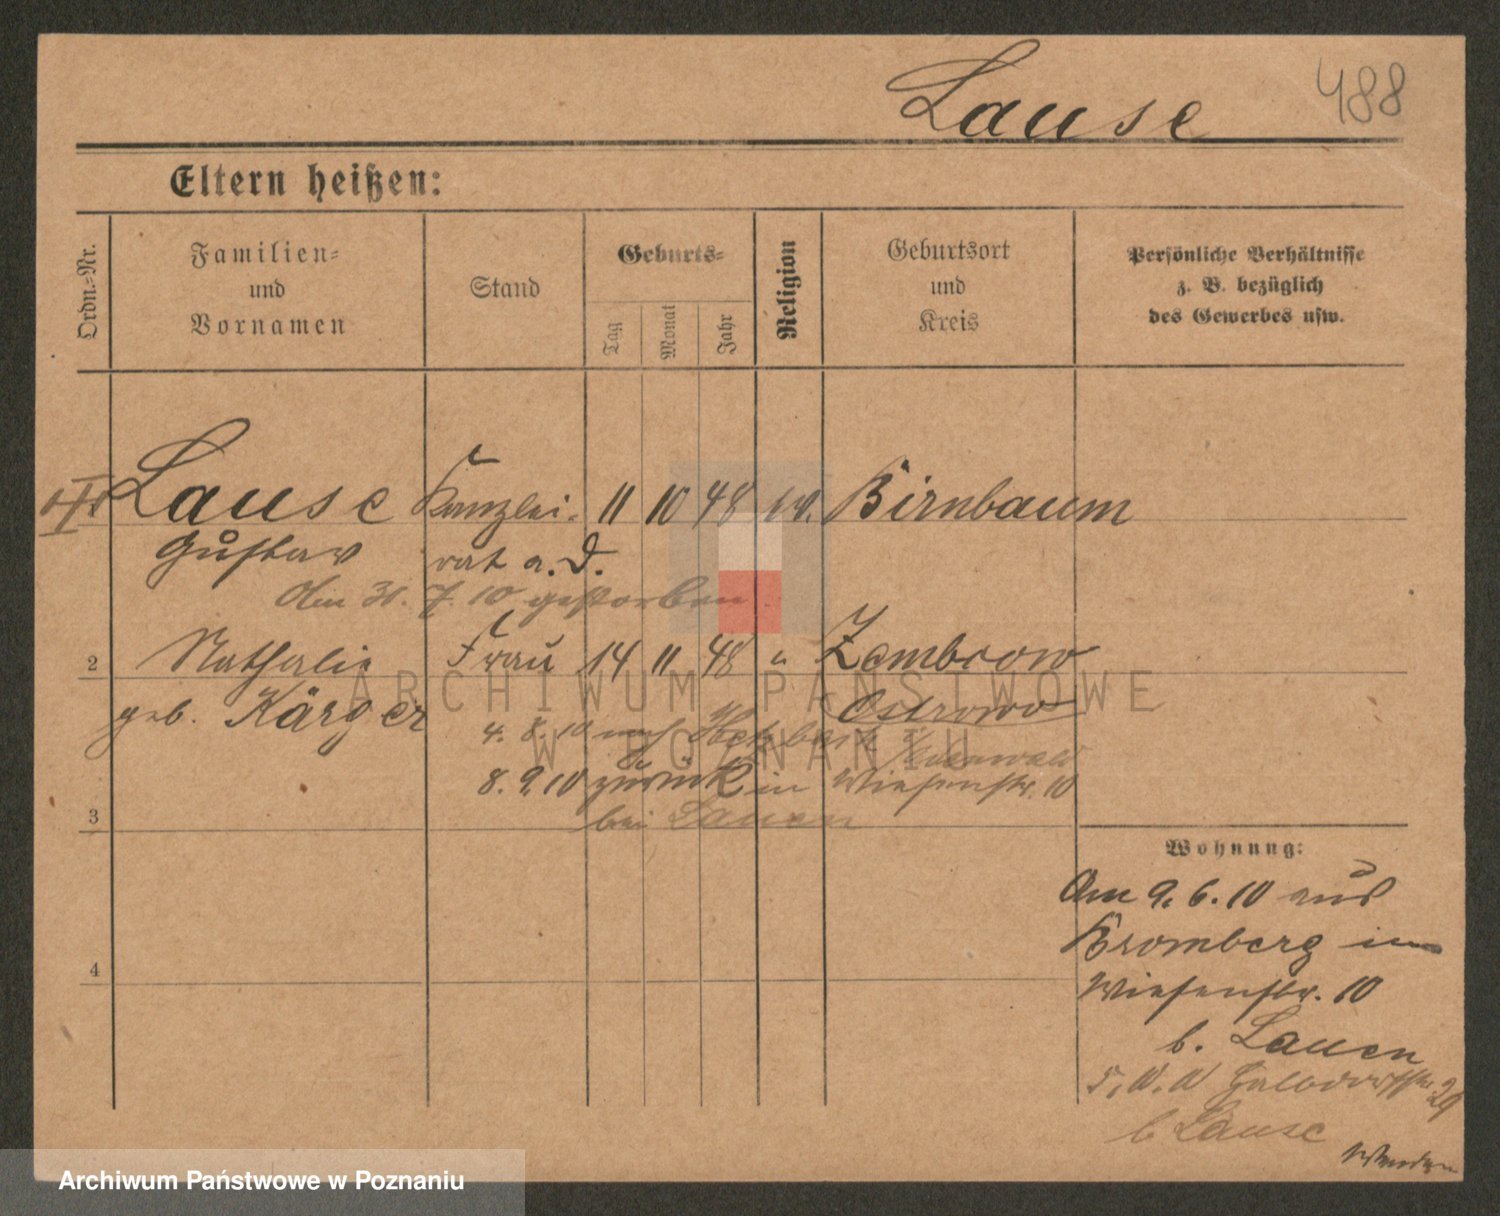 Lause 488
Eltern heißen:
Ordn.-Nr.
Familien-
und
Vornamen
Stand
Geburts-
Tag
Monat
Jahr
Religion
Geburtsort
und
Kreis
Persönliche Verhältnisse
z. B. bezüglich
des Gewerbes usw.
Lause Kanzlei- 11 10 48 ev. Birnbaum
Gustav rat a. D.
Am 31. 7. 10 gestorben
2 Nathalie Frau 14 11 48 " Zembrow
geb. Kärger Ostrowo
4. 8. 10 nach
8. 9. 10 zurück in Wiesenstr. 10
bei Lauen
3
Wohnung:
Am 9. 6. 10 aus
Bromberg in
Wiesenstr. 10
b. Lauen
29
b Lause
Wenden
4
ARCHIWUM PAŃSTWOWE
W POZNANIU
Archiwum Państwowe w Poznaniu